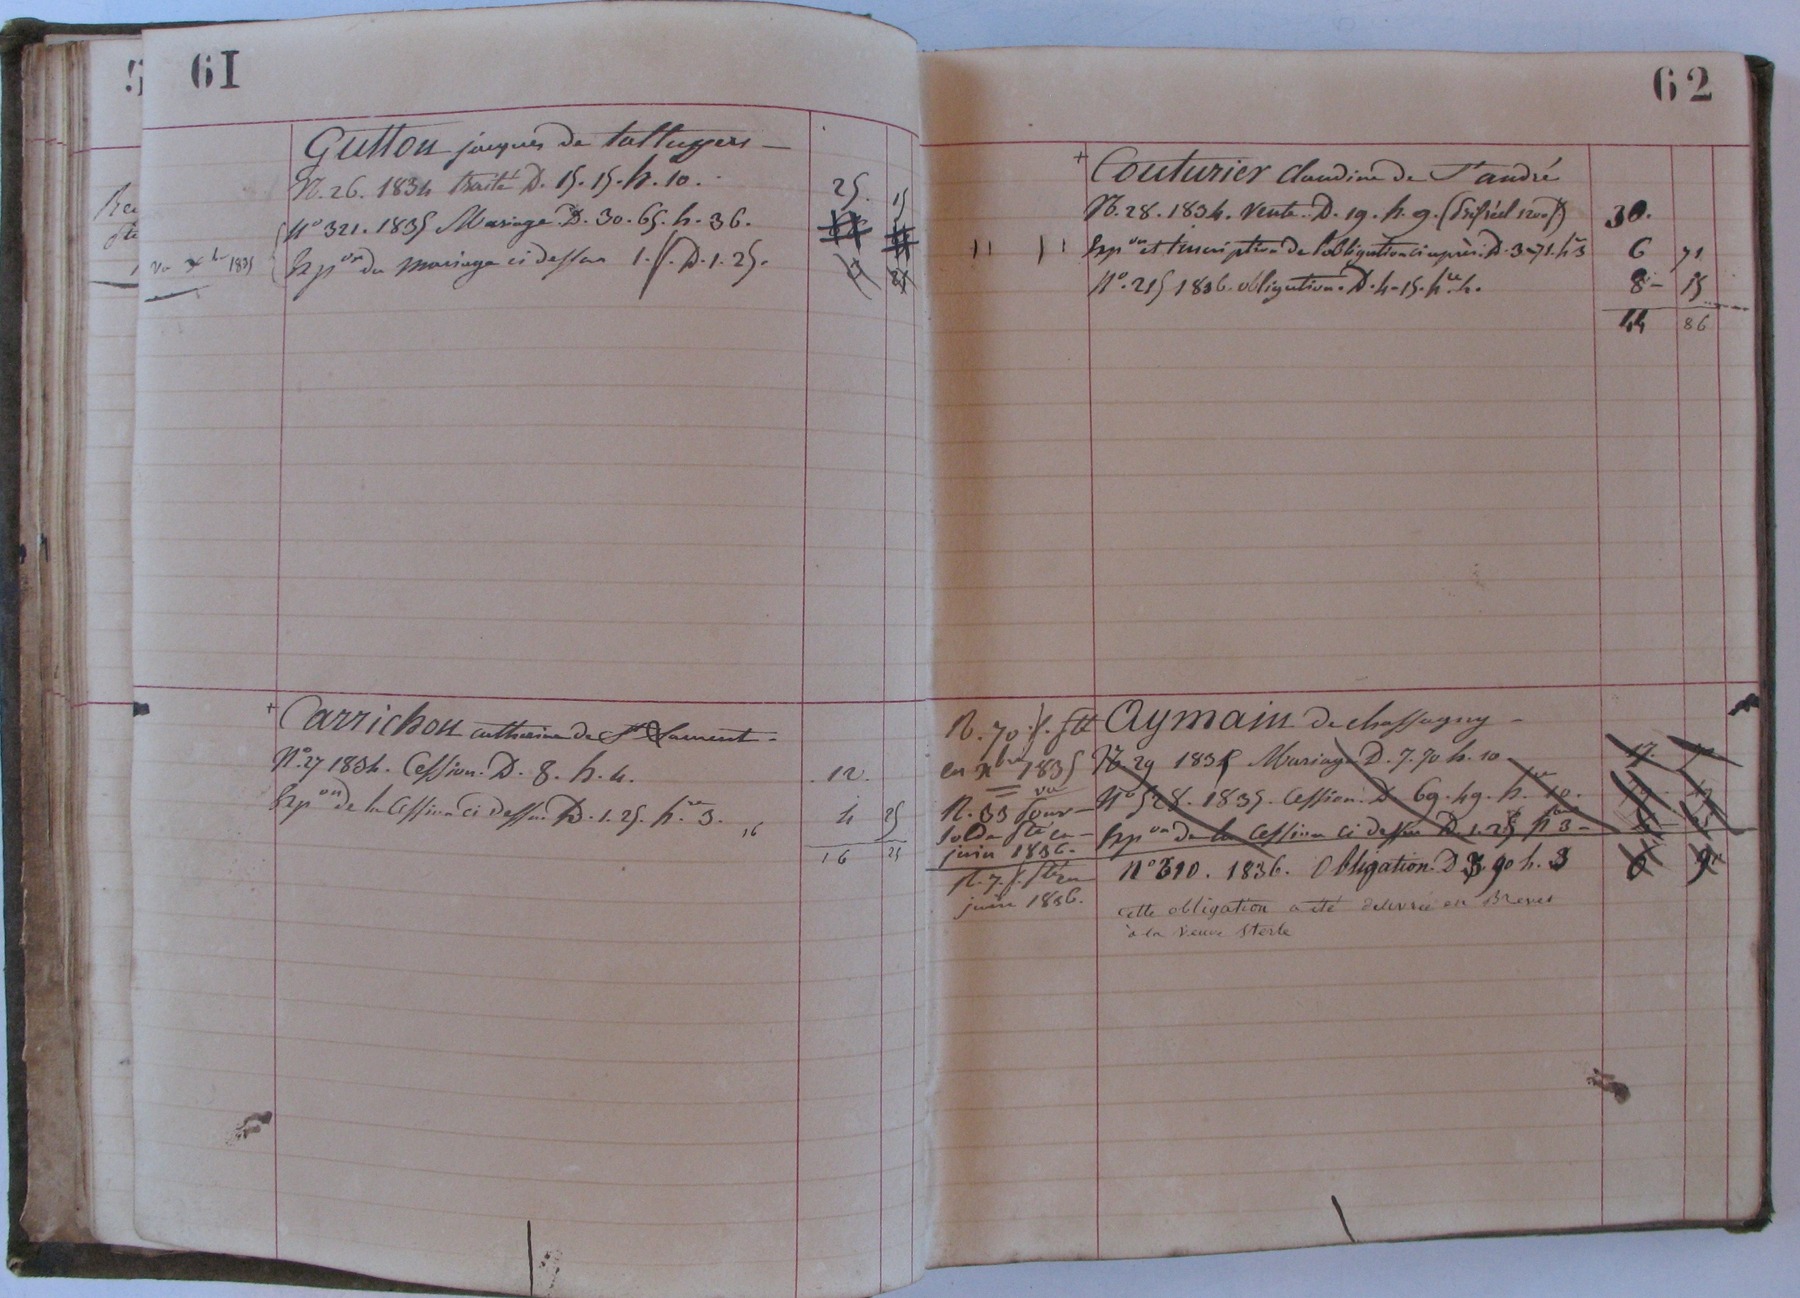 61
Gutton jacques de taluyers
N. 26. 1834 traité D. 15. 15. h. 10. 25. 15
N° 321. 1835 Mariage D. 30. 65. h. 36.
Exp on du mariage ci dessus 1. f. D. 1. 25.
1835
+ Carrichon catherine de St Laurent
N° 27 1834. Cession. D. 8. h. 4. 12.
Exp on de la Cession ci dessus D. 1. 25. h re 3. 4 25
16
16 25
62
+ Couturier claudine de St andré
N. 28. 1834. Vente. D. 19. h. 9. 30.
Exp on et Inscription de l'obligation ci après. D. 3-71. h re 3 6 71
N° 215 1836. obligation. D. 4-15. h re 4. 8 - 15
44 86
Aymain de chassagny
R. 70 f.
en x bre 1835
N. 29 1835 Mariage D. 7. 70 h. 10 17
N° 525. 1835. Cession. D 69. 49. h re 10.
Exp on de la Cession ci dessus D. 1. 25 h re 3 -
R. 33 pour
solde
juin 1836.
N° 310. 1836. Obligation. D 3. 90 h. 3 6 90
R. 7. f.
juin 1836.
cette obligation a été délivrée en Brevet
à la veuve